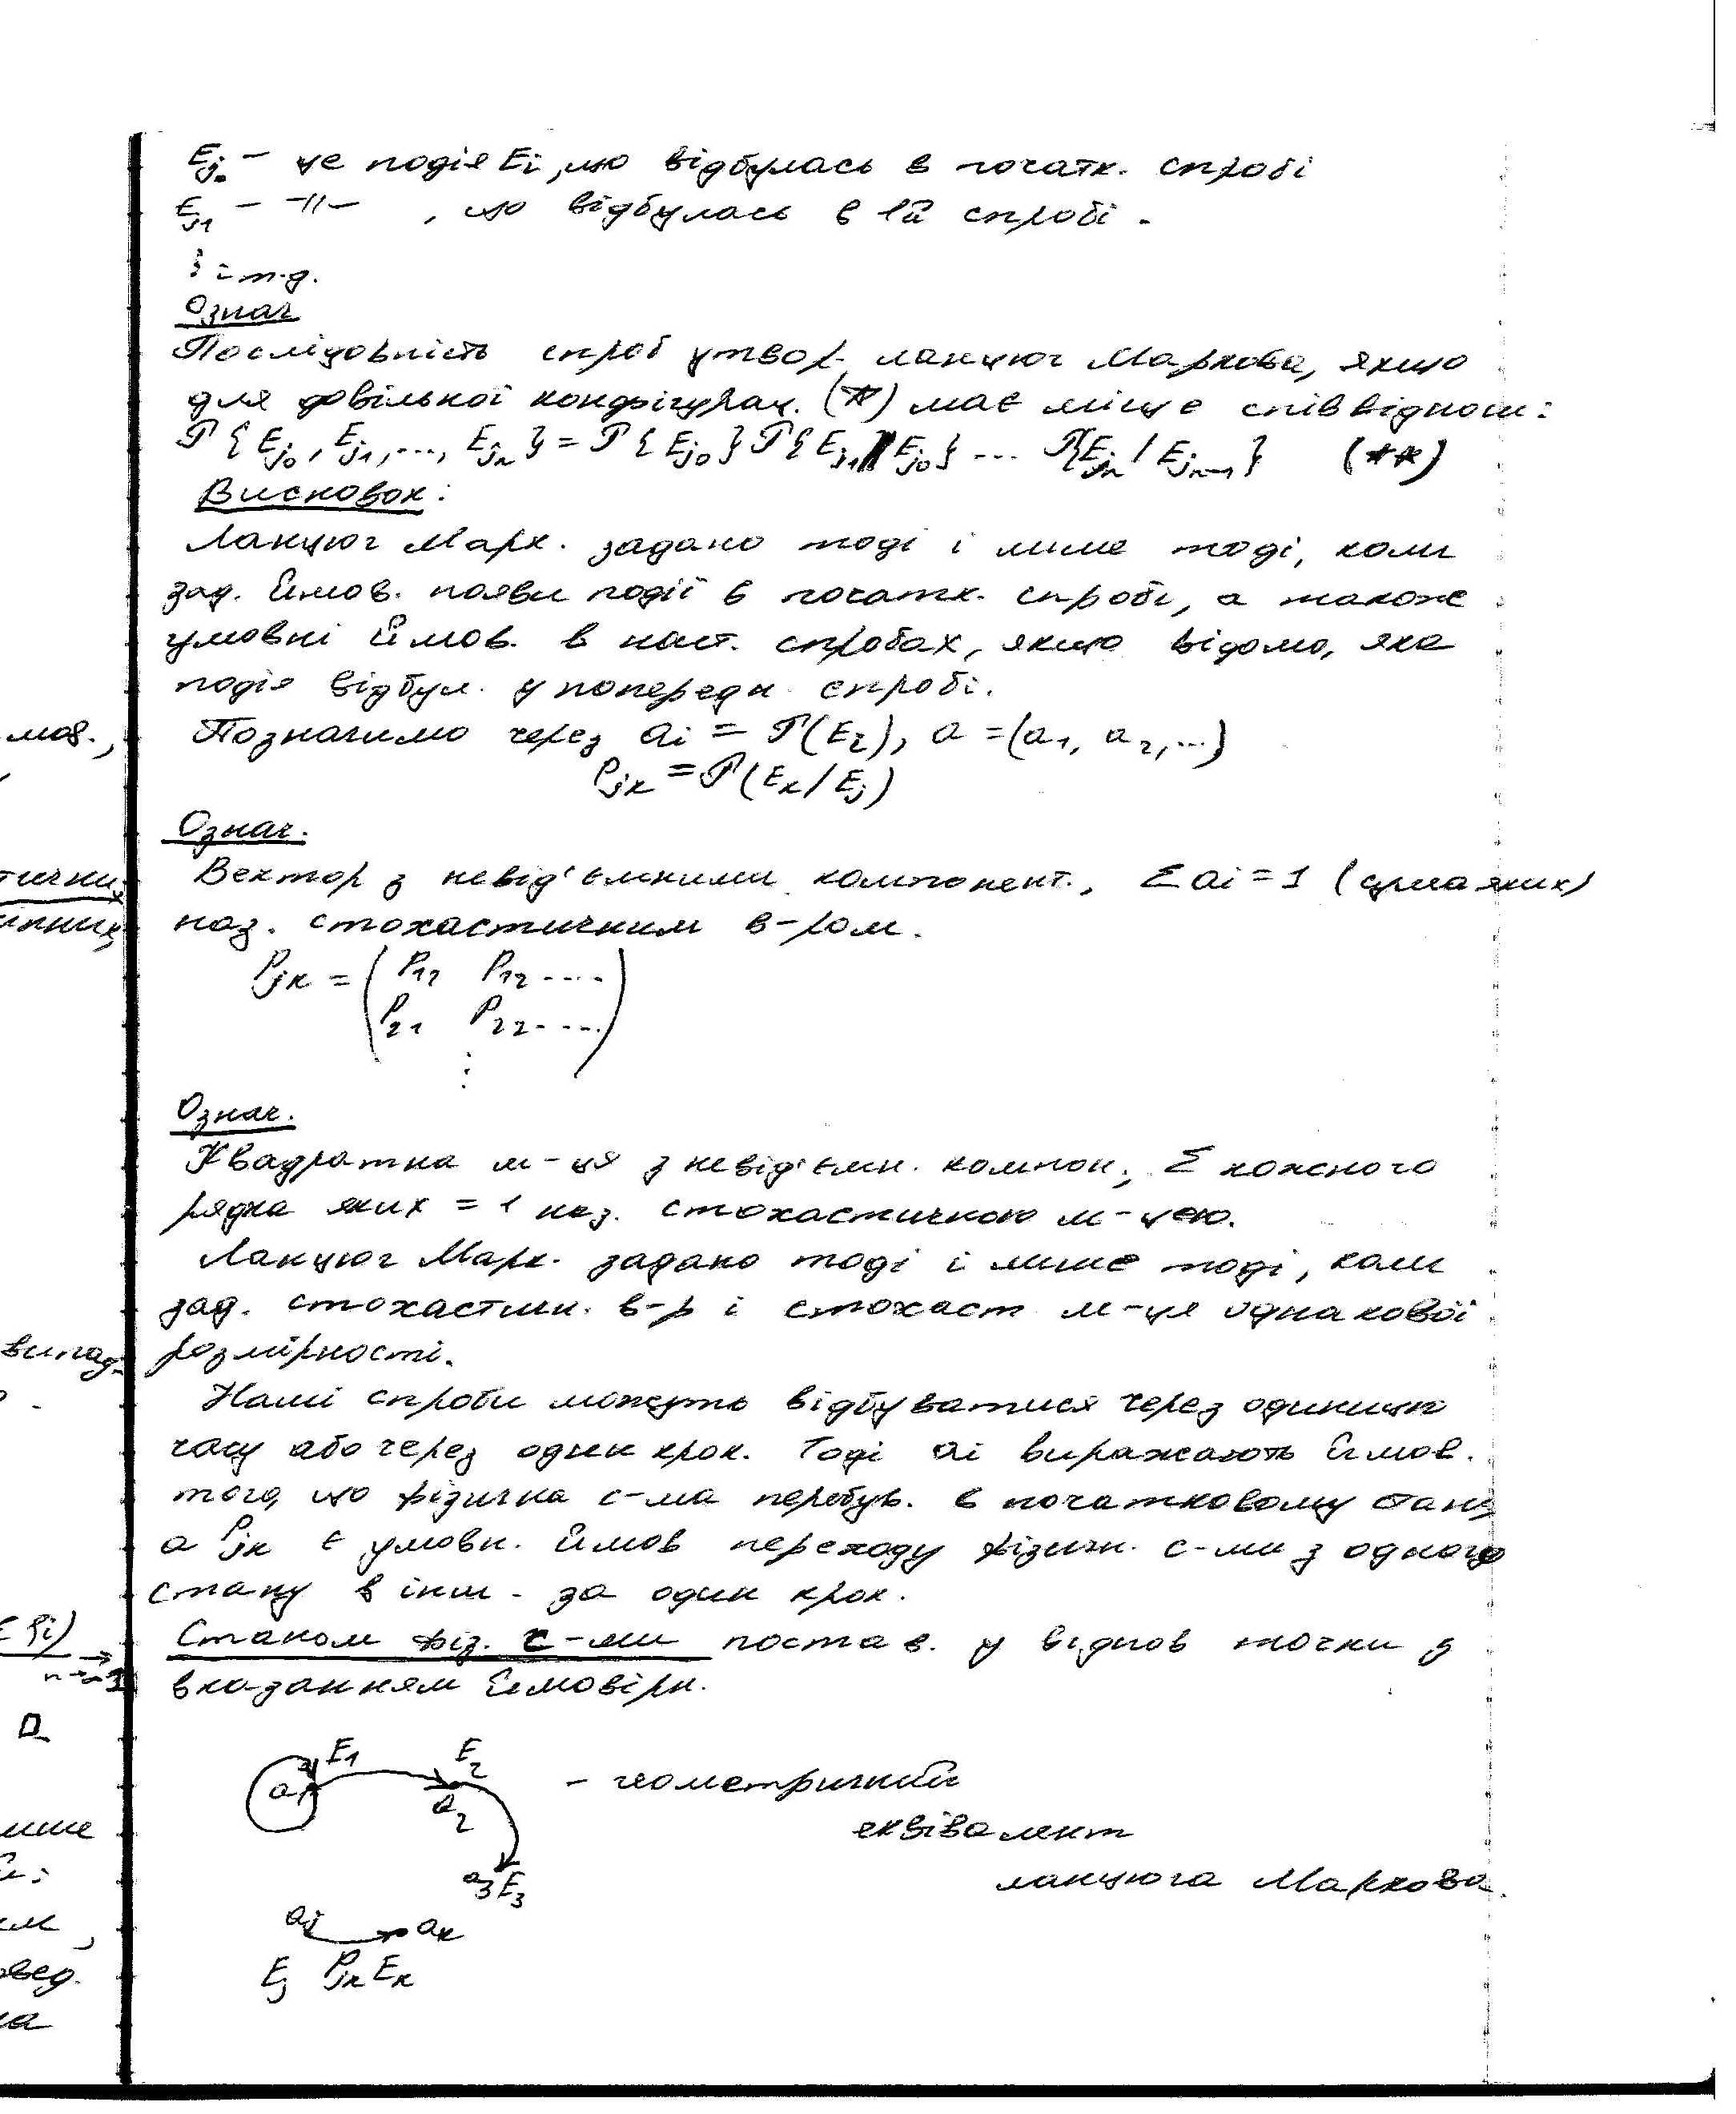 E_{j0} – це подія Ei, що відбулась в початк. спробі
E_{j1} – –//– , що відбулась в 1й спробі.
і т.д.
Означ
Послідовність спроб утвор. ланцюг Маркова, якщо
для довільної конфігурац. (*) має місце співвіднош:
P{E_{j0}, E_{j1}, ..., E_{jn}} = P{E_{j0}}P{E_{j1}/E_{j0}} ... P{E_{jn}/E_{jn-1}} (**)
Висновок:
Ланцюг Марк. задано тоді і лише тоді, коли
зад. ймов. появи події в початк. спробі, а також
умовні ймов. в наст. спробах, якщо відомо, яка
подія відбул. у попередн. спробі.
Позначимо через ai = P(E_i), a = (a_1, a_2, ...)
P_{jk} = P(E_k/E_j)
Означ.
Вектор з невід'ємними компонент., Σ ai = 1 (сума яких)
наз. стохастичним в-ром.
P_{jk} = ( P_{11} P_{12} ....
P_{21} P_{22} .... )
⋮
Означ.
Квадратна м-ця з невід'ємн. компон., Σ кожного
рядка яких = 1 наз. стохастичною м-цею.
Ланцюг Марк. задано тоді і лише тоді, коли
зад. стохастичн. в-р і стохаст м-ця однакової
розмірності.
Наші спроби можуть відбуватися через одиницю
часу або через один крок. Тоді ai виражають ймов.
того, що фізична с-ма перебув. в початковому стані,
а P_{jk} є умовн. ймов переходу фізичн. с-ми з одного
стану в інш. за один крок.
Станом фіз. с-ми постав. у віднов точки з
вказанням ймовірн.
E_1 E_2
a_1 a_2
a_3 E_3
– геометричний
еквівалент
ланцюга Маркова.
a_j a_k
E_j P_{jk} E_k
мов.,
випад.
n→∞